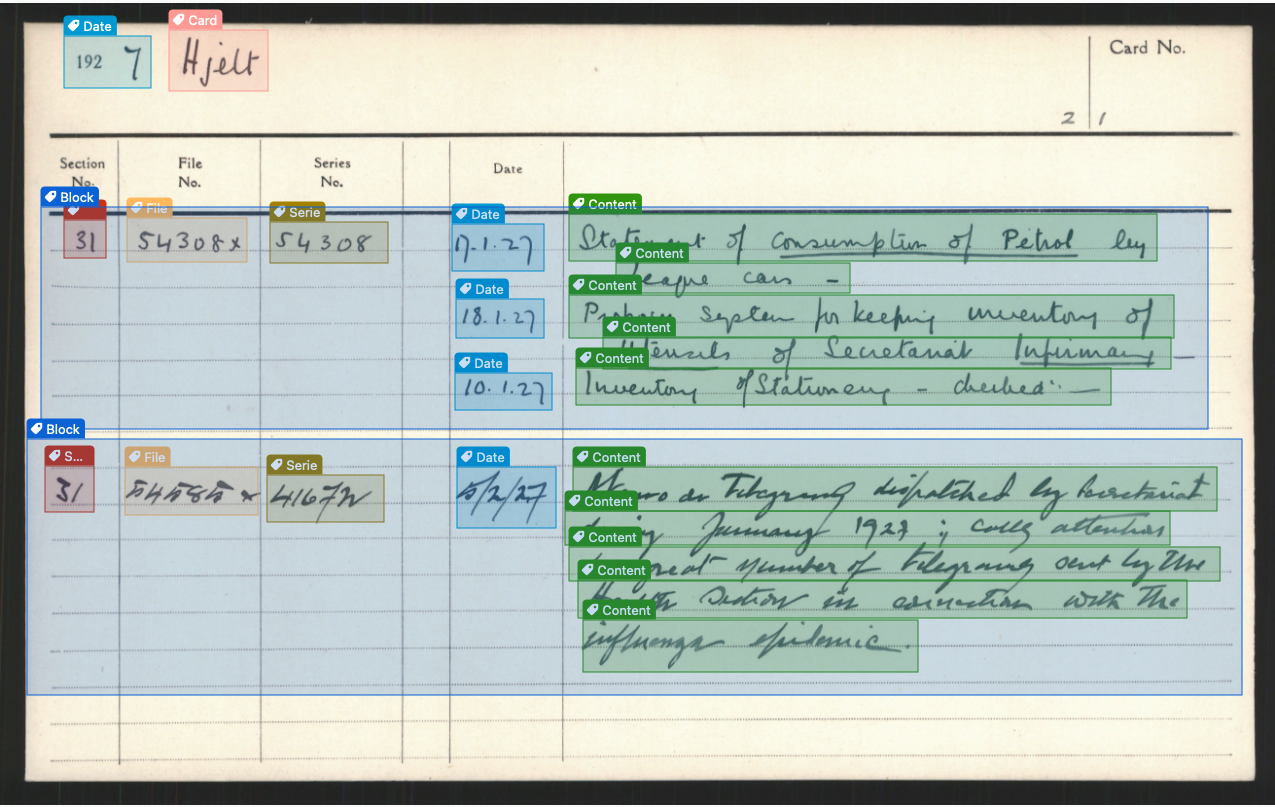 Date Card
192 7 Hjelt
Card No.
2 1
Section No. File No. Series No. Date
Block
File Serie Date Content
31 54308x 54308 17.1.27 Statement of consumption of Petrol by
Content
League cars —
Date Content
18.1.27 Proposes system for keeping inventory of
Content
Utensils of Secretariat Infirmary —
Date Content
10.1.27 Inventory of Stationery - checked: —
Block
S... File Serie Date Content
31 54585 x 41672 5/2/27 Memo on Telegrams dispatched by Secretariat
Content
during January 1927 ; calls attention
Content
great number of telegrams sent by the
Content
Health Section in connection with the
Content
influenza epidemic.